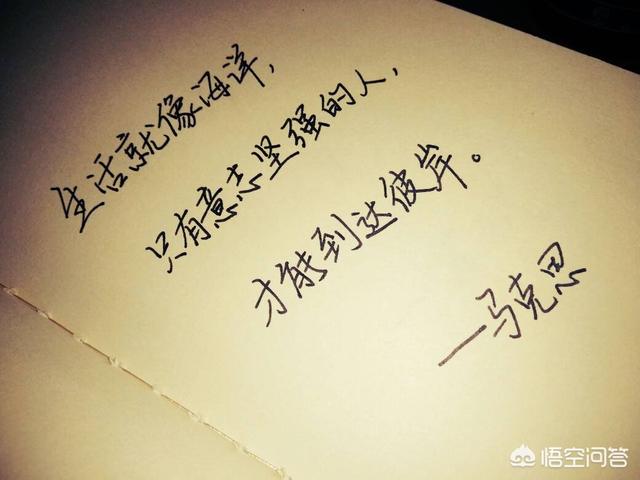 生活就像海洋，
只有意志坚强的人，
才能到达彼岸。
—马克思
悟空问答